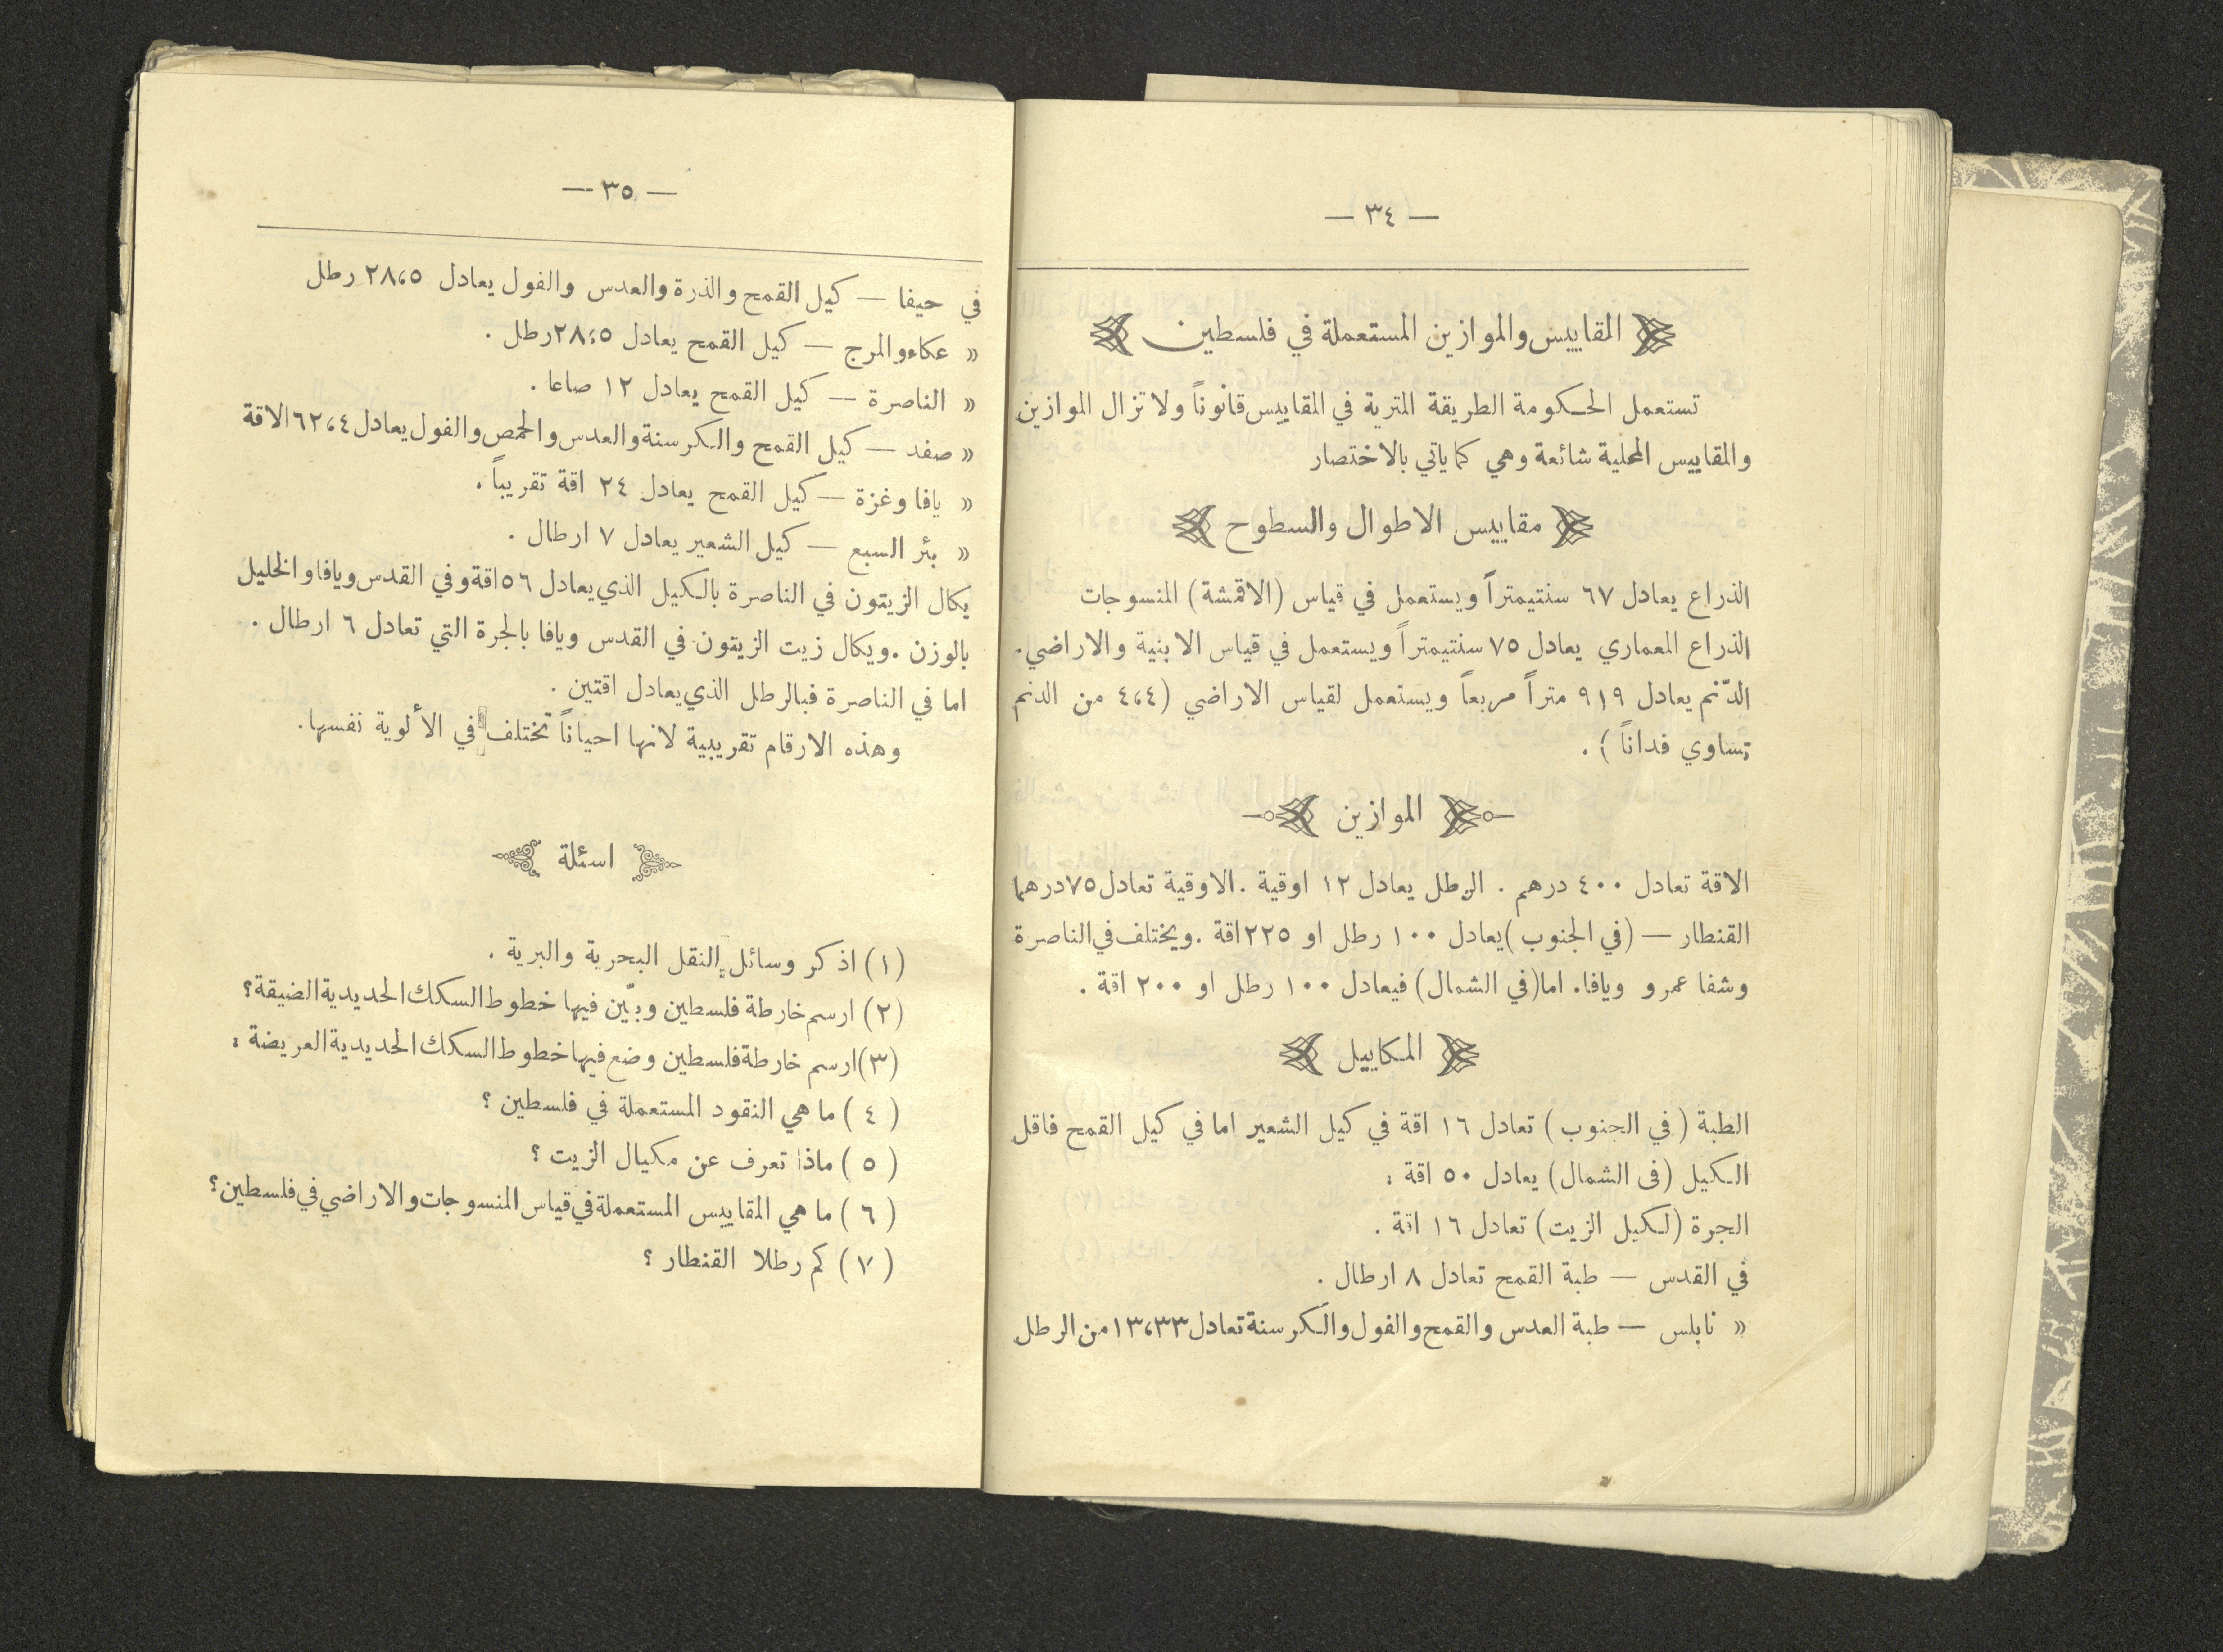 — ٣٤ —
المقاييس والموازين المستعملة في فلسطين
تستعمل الحكومة الطريقة المترية في المقاييس قانوناً ولا تزال الموازين
والمقاييس المحلية شائعة وهي كما ياتي بالاختصار
مقاييس الاطوال والسطوح
الذراع يعادل ٦٧ سنتيمتراً ويستعمل في قياس (الاقمشة) المنسوجات
الذراع المعماري يعادل ٧٥ سنتيمتراً ويستعمل في قياس الابنية والاراضي.
الدّنم يعادل ٩١٩ متراً مربعاً ويستعمل لقياس الاراضي (٤،٤ من الدنم
تساوي فداناً) .
الموازين
الاقة تعادل ٤٠٠ درهم . الرطل يعادل ١٢ اوقية .الاوقية تعادل ٧٥ درهما
القنطار — (في الجنوب) يعادل ١٠٠ رطل او ٢٢٥ اقة .ويختلف في الناصرة
وشفا عمرو ويافا. اما (في الشمال) فيعادل ١٠٠ رطل او ٢٠٠ اقة .
المكاييل
الطبة (في الجنوب) تعادل ١٦ اقة في كيل الشعير اما في كيل القمح فاقل
الكيل (فى الشمال) يعادل ٥٠ اقة :
الجرة (لكيل الزيت) تعادل ١٦ اقة .
في القدس — طبة القمح تعادل ٨ ارطال .
« نابلس — طبة العدس والقمح والفول والكرسنة تعادل ١٣،٣٣ من الرطل
— ٣٥ —
في حيفا — كيل القمح والذرة والعدس والفول يعادل ٢٨،٥ رطل
« عكاء والمرج — كيل القمح يعادل ٢٨،٥ رطل .
« الناصرة — كيل القمح يعادل ١٢ صاعا .
« صفد — كيل القمح والكرسنة والعدس والحمص والفول يعادل ٦٢،٤ الاقة
« يافا وغزة — كيل القمح يعادل ٢٤ اقة تقريباً .
« بئر السبع — كيل الشعير يعادل ٧ ارطال .
يكال الزيتون في الناصرة بالكيل الذي يعادل ٥٦ اقة وفي القدس ويافا والخليل
بالوزن .ويكال زيت الزيتون في القدس ويافا بالجرة التي تعادل ٦ ارطال .
اما في الناصرة فبالرطل الذي يعادل اقتين .
وهذه الارقام تقريبية لانها احياناً تختلف في الألوية نفسها.
اسئلة
(١) اذكر وسائل النقل البحرية والبرية .
(٢) ارسم خارطة فلسطين وبيّن فيها خطوط السكك الحديدية الضيقة؟
(٣) ارسم خارطة فلسطين وضع فيها خطوط السكك الحديدية العريضة :
(٤) ما هي النقود المستعملة في فلسطين ؟
(٥) ماذا تعرف عن مكيال الزيت ؟
(٦) ما هي المقاييس المستعملة في قياس المنسوجات والاراضي في فلسطين؟
(٧) كم رطلا القنطار ؟